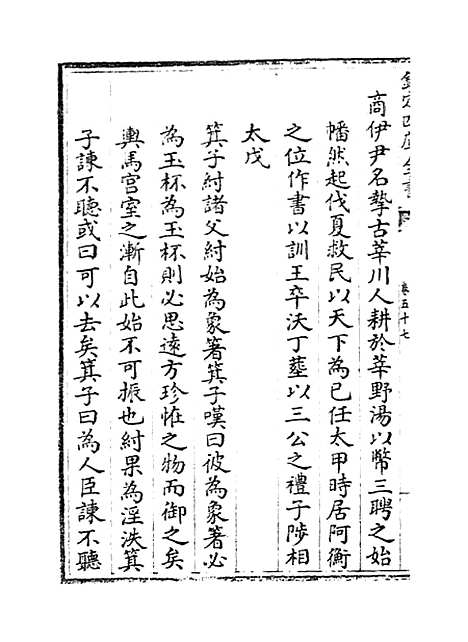 欽定四庫全書
卷五十七
商伊尹名摯古莘川人耕於莘野湯以幣三聘之始
幡然起伐夏救民以天下為已任太甲時居阿衡
之位作書以訓王卒沃丁塟以三公之禮子陟相
太戊
箕子紂諸父紂始為象箸箕子嘆曰彼為象箸必
為玉杯為玉杯則必思遠方珍恠之物而御之矣
輿馬宫室之漸自此始不可振也紂果為淫泆箕
子諫不聽或曰可以去矣箕子曰為人臣諫不聽